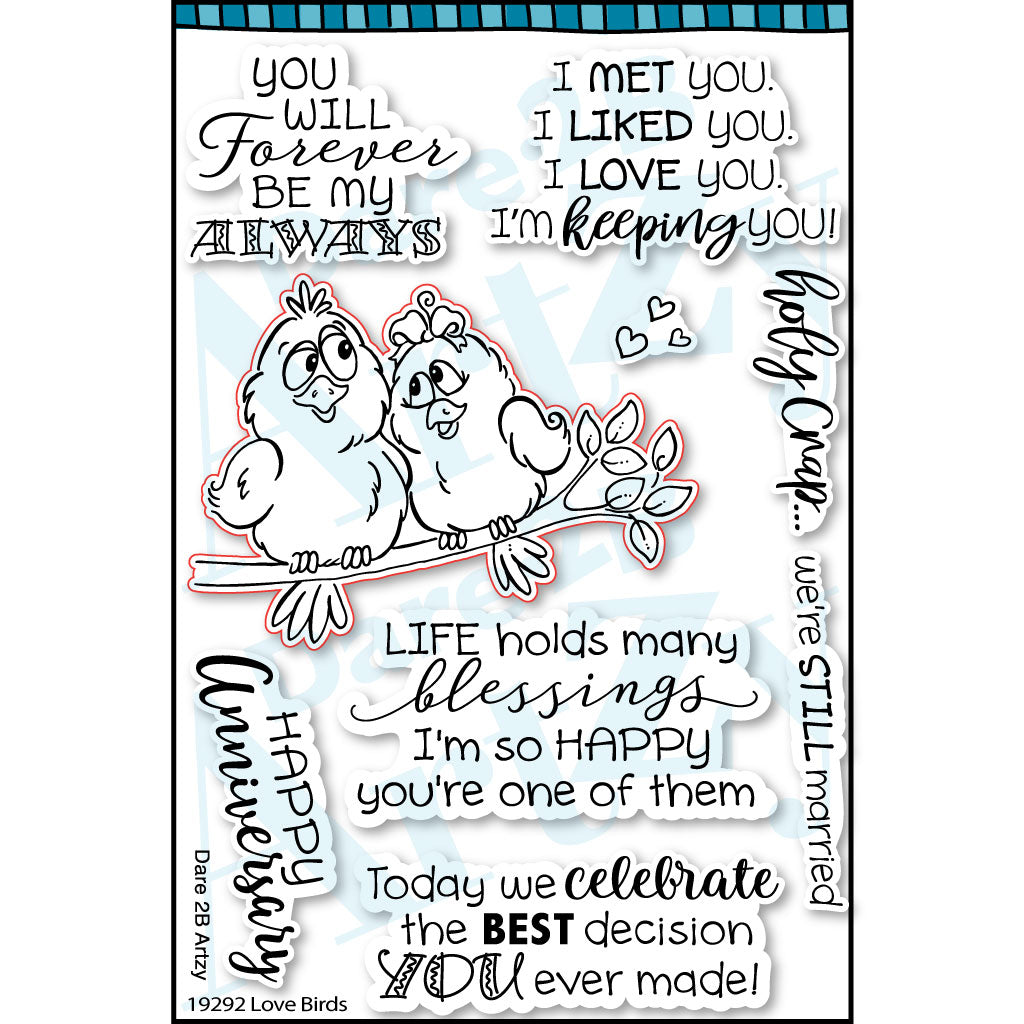 YOU
WILL
Forever
BE MY
ALWAYS
I MET YOU.
I LIKED YOU.
I LOVE YOU.
I'M keeping YOU!
holy Crap...
we're STILL married
LIFE holds many
blessings
I'm so HAPPY
you're one of them
HAPPY
Anniversary
Today we celebrate
the BEST decision
YOU ever made!
Dare 2B Artzy
19292 Love Birds
Dare 2B
Artzy
Dare 2B
Artzy